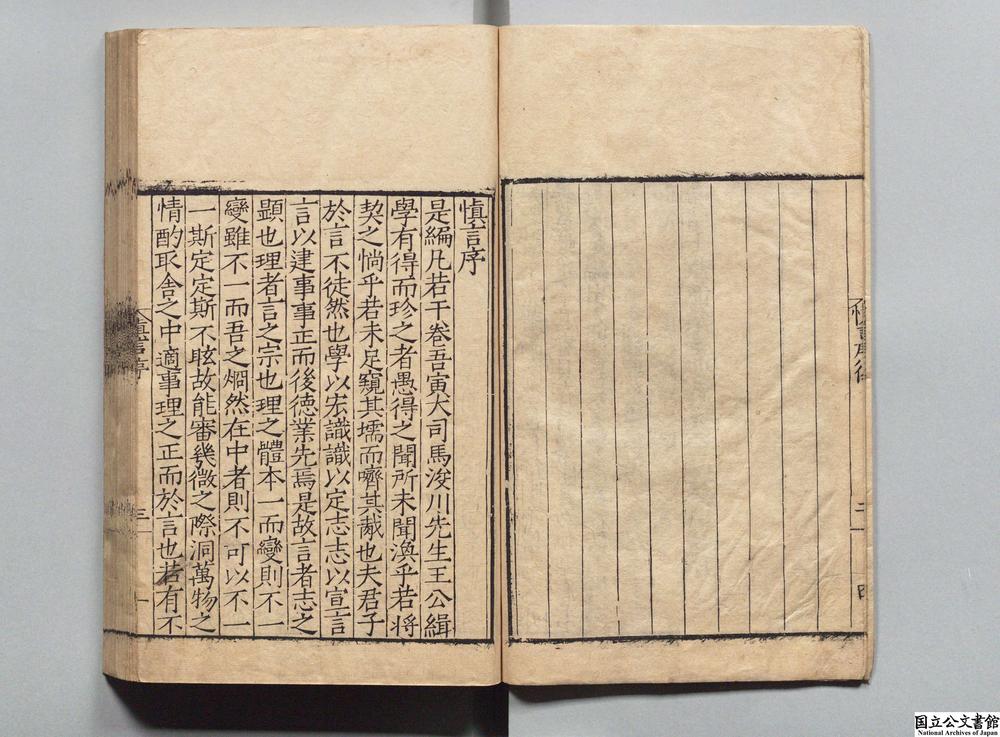 慎言序
是編凡若干卷吾寅大司馬浚川先生王公緝
學有得而珍之者愚得之聞所未聞渙乎若將
契之惝乎若未足窺其壖而嚌其胾也夫君子
於言不徒然也學以宏識識以定志志以宣言
言以建事事正而後德業先焉是故言者志之
顯也理者言之宗也理之體本一而變則不一
變雖不一而吾之烱然在中者則不可以不一
一斯定定斯不眩故能審幾微之際洞萬物之
情酌取舍之中適事理之正而於言也若有不
慎言序
三
一
三
四
国立公文書館
National Archives of Japan